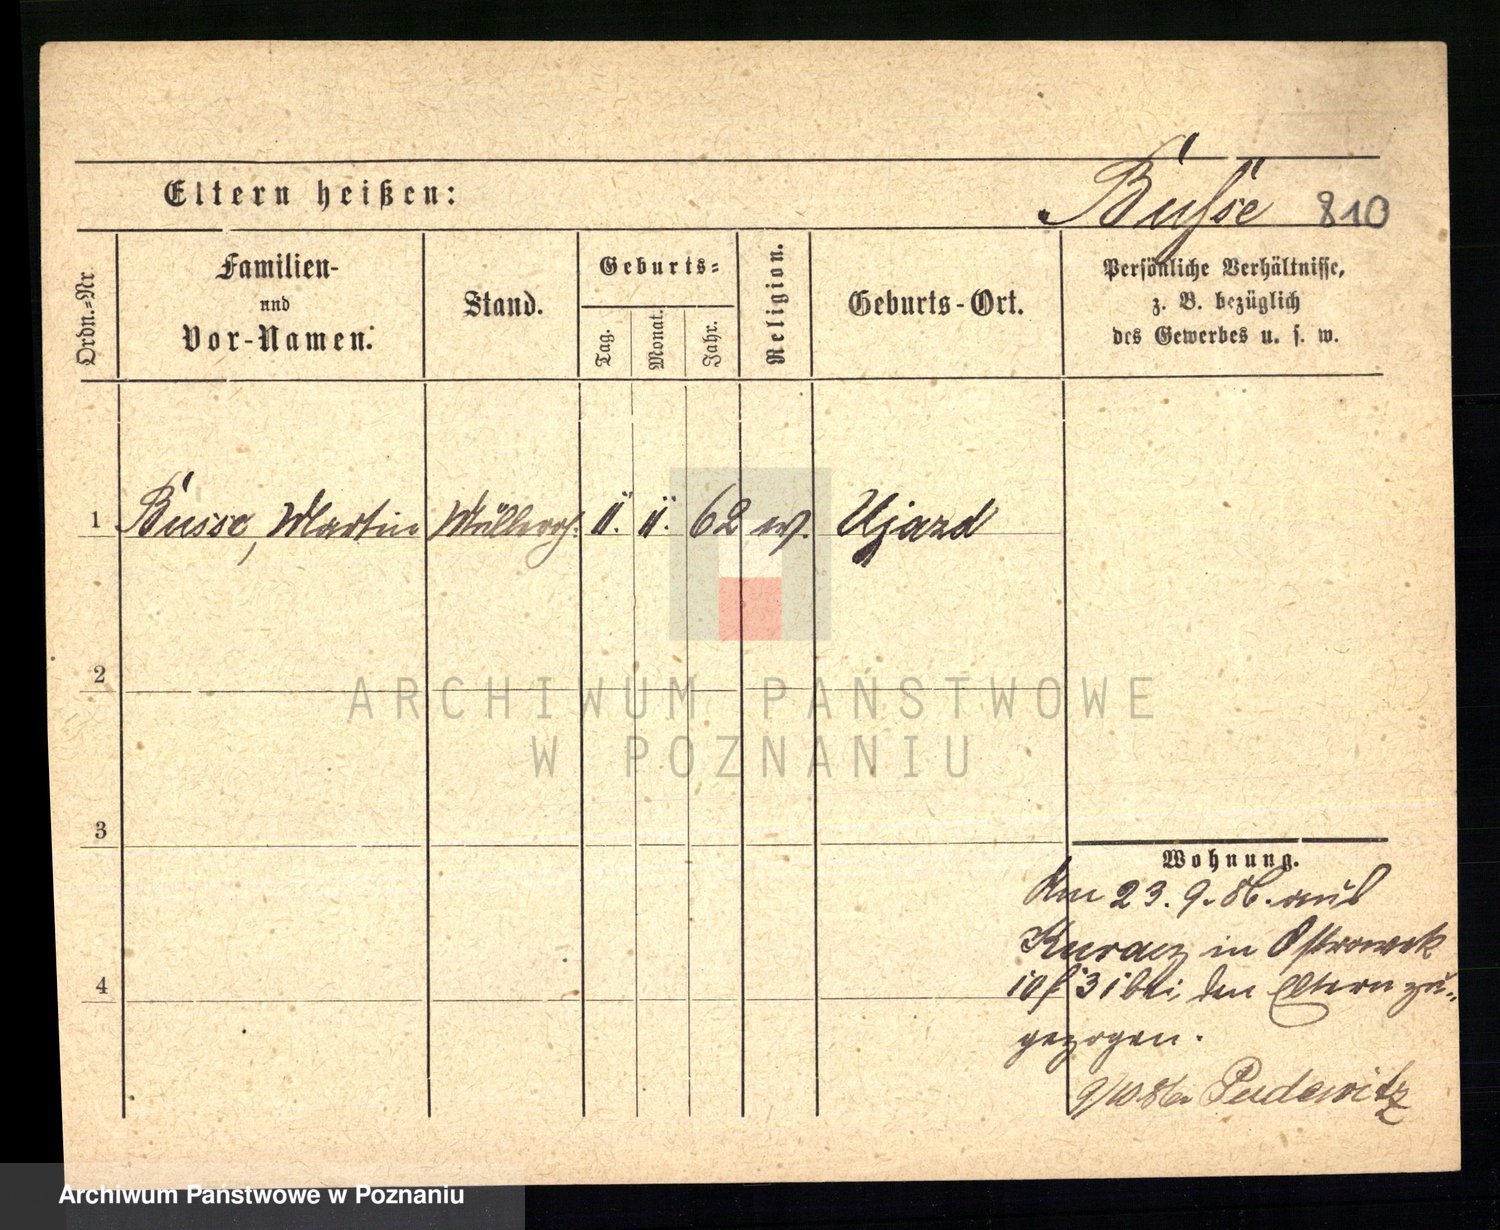 Eltern heißen:
Busse 810
Ordn.-Nr
Familien-
und
Vor-Namen.
Stand.
Geburts-
Tag.
Monat.
Jahr.
Religion.
Geburts-Ort.
Persönliche Verhältnisse,
z. B. bezüglich
des Gewerbes u. s. w.
1 Busse, Martin Müllerges. 11. 11. 62 ev. Ujazd
2
ARCHIWUM PAŃSTWOWE
W POZNANIU
3
Wohnung.
Am 23. 9. 86. aus
in Ostrowek
10 bei den Eltern zu-
gezogen.
9/10 86. Pudewitz
4
Archiwum Państwowe w Poznaniu